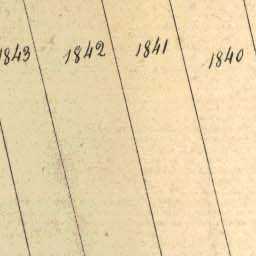 1843 1842 1841 1840